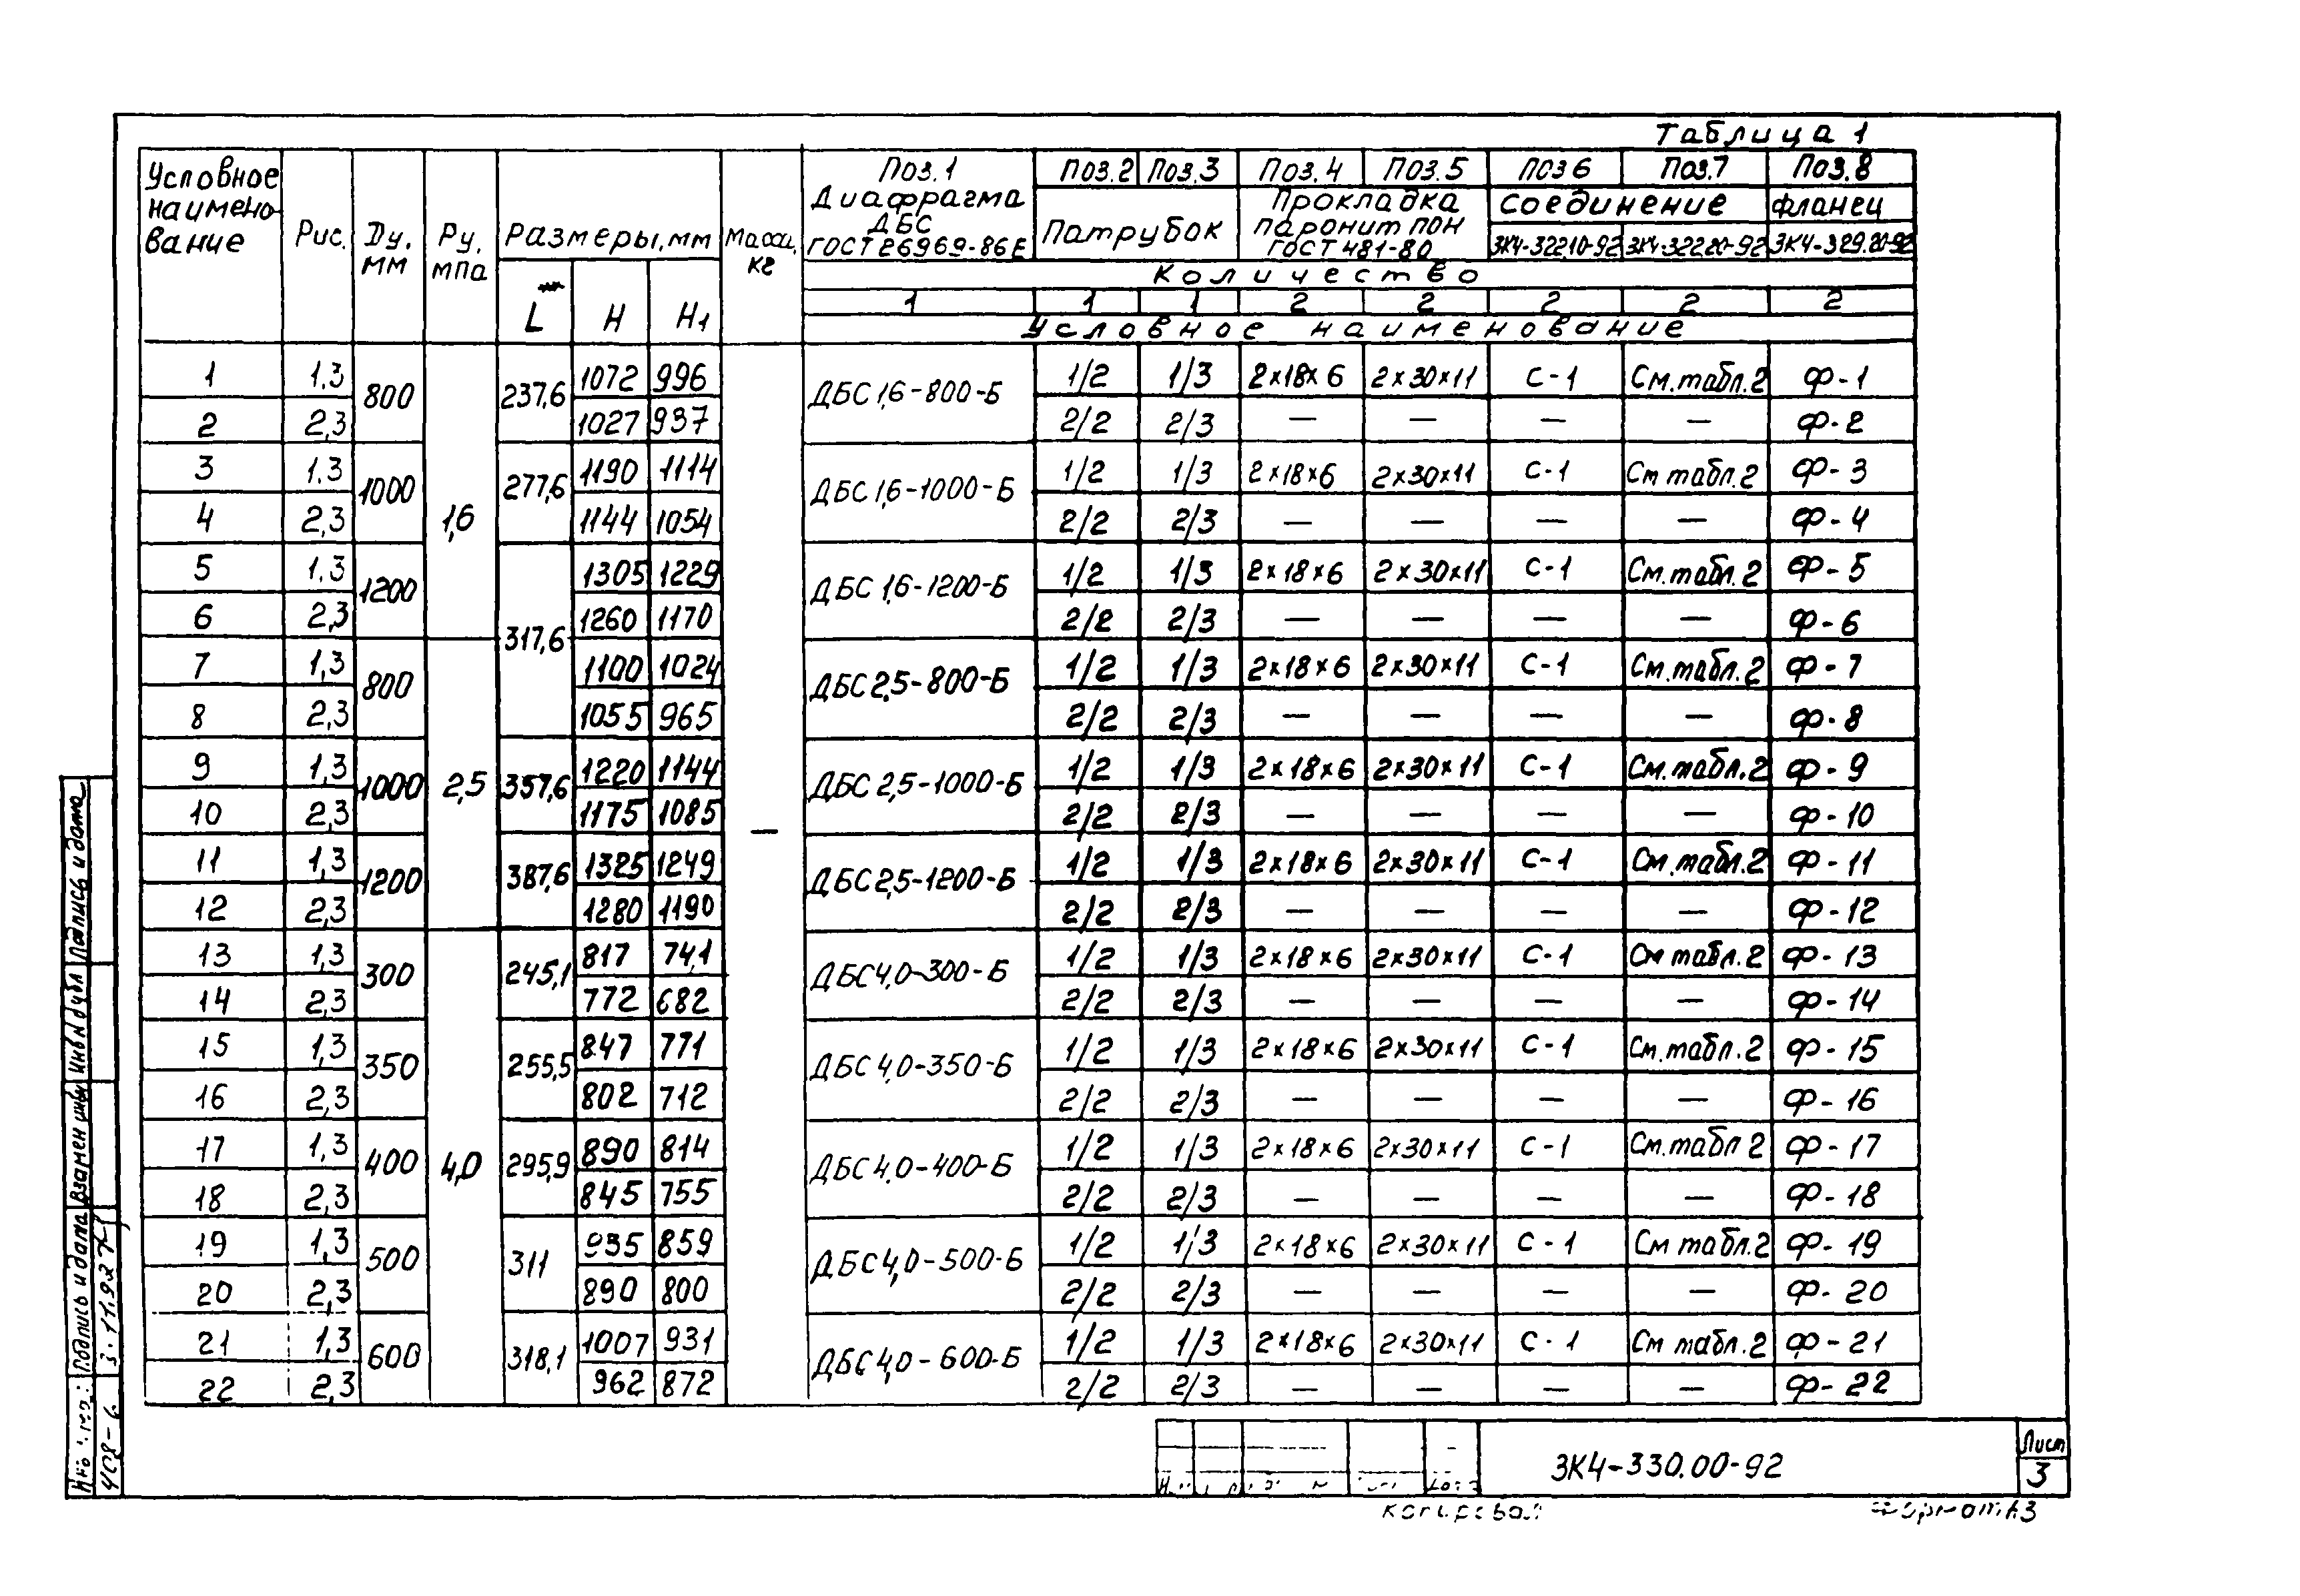 Таблица 1
Условное наимено-вание Рис. Dу, мм Ру, мпа Размеры, мм L H H1 Масса, кг
Поз.1 Поз.2 Поз.3 Поз.4 Поз.5 Поз 6 Поз.7 Поз.8
Диафрагма ДБС ГОСТ 26969-86Е Патрубок Прокладка паронит ПОН ГОСТ 481-80 Соединение Фланец
ЗК4-322.10-92 ЗК4-322.20-92 ЗК4-329.20-92
Количество
1 1 1 2 2 2 2 2
Условное наименование
1 1,3 800 1,6 237,6 1072 996 — ДБС 1,6-800-Б 1/2 1/3 2×18×6 2×30×11 С-1 См.табл.2 Ф-1
2 2,3 1027 937 2/2 2/3 — — — — Ф-2
3 1,3 1000 277,6 1190 1114 ДБС 1,6-1000-Б 1/2 1/3 2×18×6 2×30×11 С-1 См табл.2 Ф-3
4 2,3 1144 1054 2/2 2/3 — — — — Ф-4
5 1,3 1200 317,6 1305 1229 ДБС 1,6-1200-Б 1/2 1/3 2×18×6 2×30×11 С-1 См.табл.2 Ф-5
6 2,3 1260 1170 2/2 2/3 — — — — Ф-6
7 1,3 800 2,5 1100 1024 ДБС 2,5-800-Б 1/2 1/3 2×18×6 2×30×11 С-1 См.табл.2 Ф-7
8 2,3 1055 965 2/2 2/3 — — — — Ф-8
9 1,3 1000 357,6 1220 1144 ДБС 2,5-1000-Б 1/2 1/3 2×18×6 2×30×11 С-1 См.табл.2 Ф-9
10 2,3 1175 1085 2/2 2/3 — — — — Ф-10
11 1,3 1200 387,6 1325 1249 ДБС 2,5-1200-Б 1/2 1/3 2×18×6 2×30×11 С-1 См.табл.2 Ф-11
12 2,3 1280 1190 2/2 2/3 — — — — Ф-12
13 1,3 300 4,0 245,1 817 74,1 ДБС 4,0-300-Б 1/2 1/3 2×18×6 2×30×11 С-1 См табл.2 Ф-13
14 2,3 772 682 2/2 2/3 — — — — Ф-14
15 1,3 350 255,5 847 771 ДБС 4,0-350-Б 1/2 1/3 2×18×6 2×30×11 С-1 См.табл.2 Ф-15
16 2,3 802 712 2/2 2/3 — — — — Ф-16
17 1,3 400 295,9 890 814 ДБС 4,0-400-Б 1/2 1/3 2×18×6 2×30×11 С-1 См.табл 2 Ф-17
18 2,3 845 755 2/2 2/3 — — — — Ф-18
19 1,3 500 311 935 859 ДБС 4,0-500-Б 1/2 1/3 2×18×6 2×30×11 С-1 См табл.2 Ф-19
20 2,3 890 800 2/2 2/3 — — — — Ф-20
21 1,3 600 318,1 1007 931 ДБС 4,0-600-Б 1/2 1/3 2×18×6 2×30×11 С-1 См табл.2 Ф-21
22 2,3 962 872 2/2 2/3 — — — — Ф-22
Подпись и дата
Инв N дубл
Взамен инв
Подпись и дата
3.11.92
408-6
ЗК4-330.00-92
Лист
3
Копировал
Формат А3